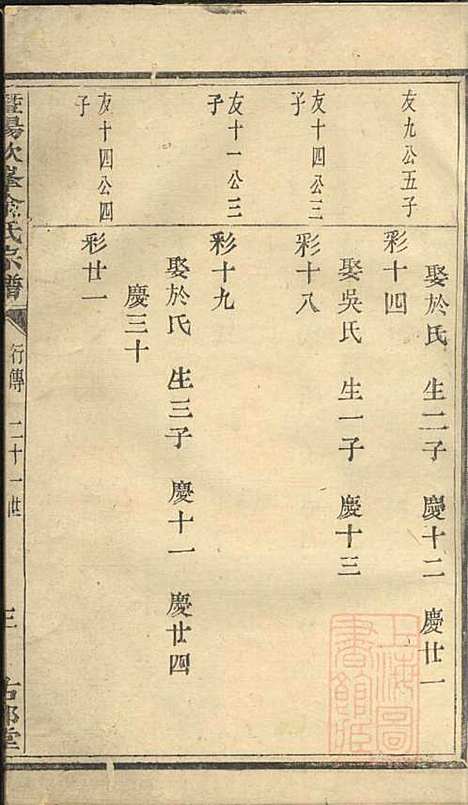 友九公五子
彩十四
娶於氏 生二子 慶十二 慶廿一
友十四公三
子
彩十八
娶吳氏 生一子 慶十三
友十一公三
子
彩十九
娶於氏 生三子 慶十一 慶廿四
慶三十
友十四公四
子
彩廿一
暨陽次峯俞氏宗譜
行傳 二十一世
三
上海圖
書館藏